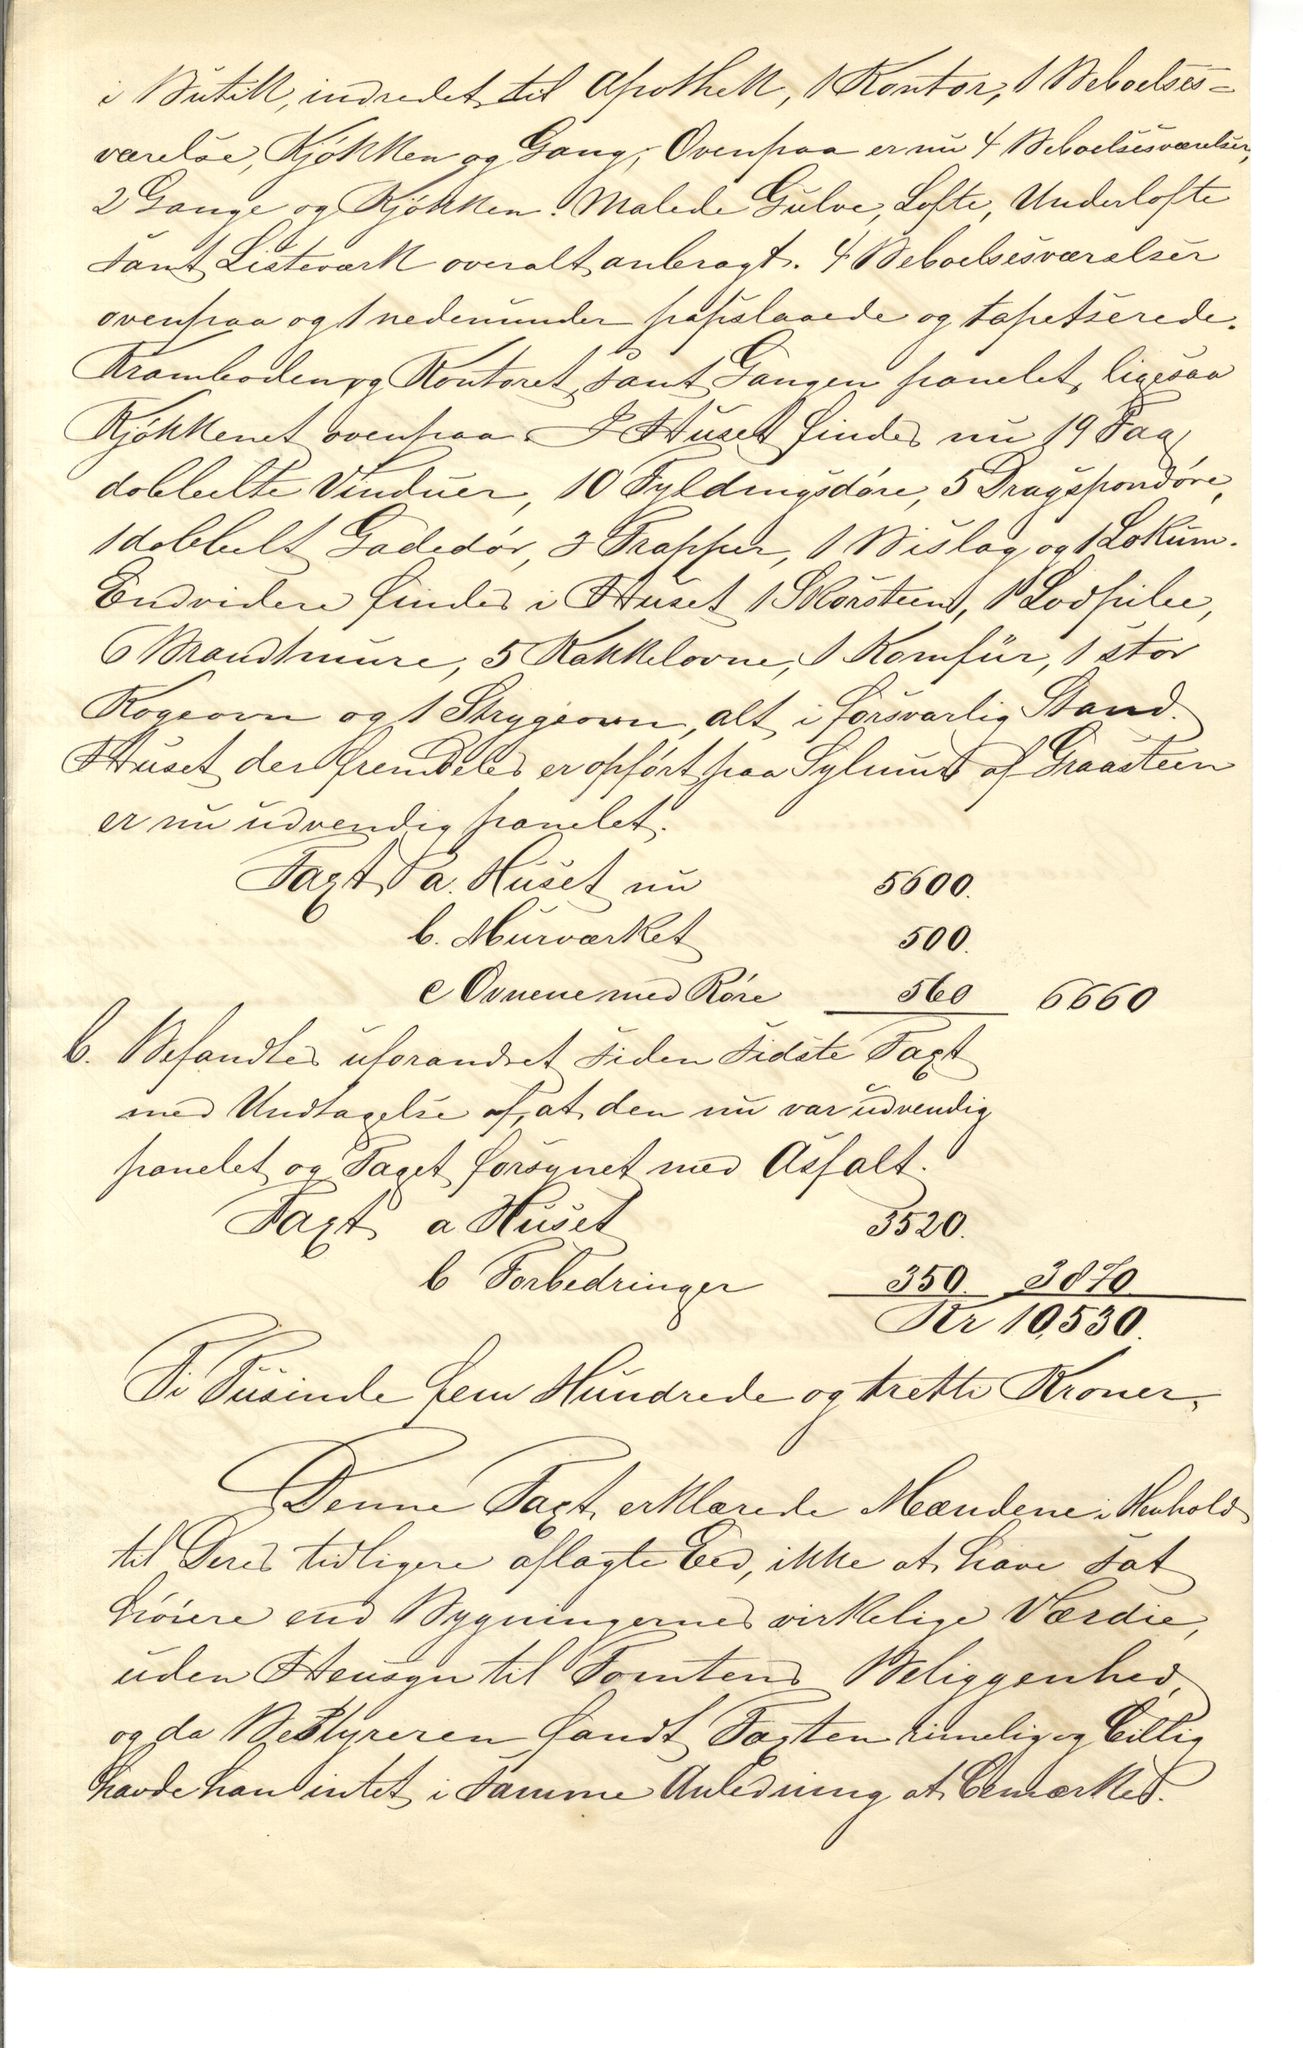 i Butik, indredet til Apothek, 1 Kontor, 1 Beboelses=
værelse, Kjøkken og Gang, Ovenpaa er nu 4 Beboelsesværelser,
2 Gange og Kjøkken. Malede Gulve, Lofte, Underlofte
samt Listeværk overalt anbragt. 4 Beboelsesværelser
ovenpaa og 1 nedenunder papslaaede og tapetserede.
Kramboden og Kontoret samt Gangen panelet, ligesaa
Kjøkkenet ovenpaa. I Huset findes nu 19 Fag
dobbelte Vinduer, 10 Fyldingsdøre, 5 Dragspondøre,
1 dobbelt Gadedør, 3 Trapper, 1 Bislag og 1 Lokum.
Endvidere findes i Huset 1 Skorsteen, 1 Lodpibe,
6 Brandmure, 5 Kakkelovne, 1 Komfür, 1 stor
Kogeovn og 1 Strygeovn, alt i forsvarlig Stand.
Huset der fremdeles er opført paa Sylmur af Graasteen
er nu udvendig panelet.
Taxt a. Huset nu 5600.
b. Murværket 500.
c Ovnene med Røre 560 6660
b. Befandtes uforandret siden sidste Taxt
med Undtagelse af, at den nu var udvendig
panelet og Taget forsynet med Asfalt.
Taxt a Huset 3520.
b Forbedringer 350. 3870
Kr 10,530.
Ti Tusinde fem Hundrede og tretti Kroner.
Denne Taxt erklærede Mændene i Henhold
til Deres tidligere aflagte Eed, ikke at have sat
høiere end Bygningernes virkelige Værdie,
uden Hensyn til Tomtens Beliggenhed,
og da Bestyreren fandt Taxten rimelig og billig
havde han intet i samme Anledning at bemærke.